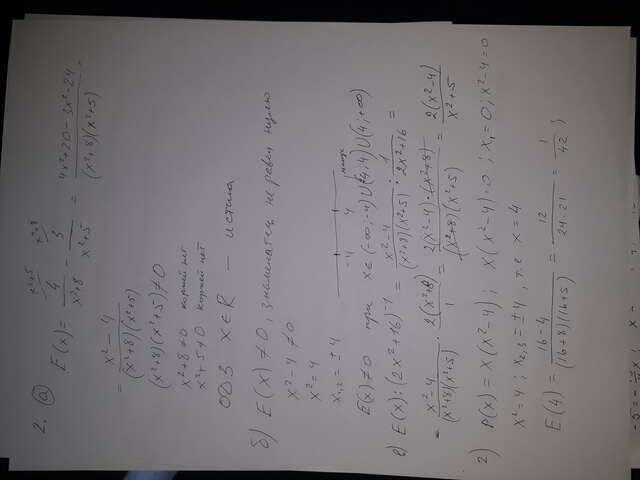 2. а) E(x) = 4/(x²+8) (x²+5) - 3/(x²+5) (x²+8) = (4x²+20-3x²-24)/((x²+8)(x²+5)) =
= (x²-4)/((x²+8)(x²+5))
(x²+8)(x²+5) ≠ 0
x²+8 ≠ 0 корней нет
x²+5 ≠ 0 корней нет
ОДЗ x ∈ R — истина
б) E(x) ≠ 0, знаменатель не равен нулю
x²-4 ≠ 0
x² = 4
x₁,₂ = ±4
-4 4
E(x) ≠ 0 при x ∈ (-∞;-4) U (-4;4) U (4;+∞)
в) E(x) : (2x²+16)⁻¹ = (x²-4)/((x²+8)(x²+5)) : 1/(2x²+16) =
= (x²-4)/((x²+8)(x²+5)) · 2(x²+8)/1 = 2(x²-4)·(x²+8)/((x²+8)(x²+5)) = 2(x²-4)/(x²+5)
г) P(x) = x(x²-4); x(x²-4)=0; x₁=0; x²-4=0
x²=4; x₂,₃ = ±4, т.е x = 4
E(4) = (16-4)/((16+8)(16+5)) = 12/(24·21) = 1/42;